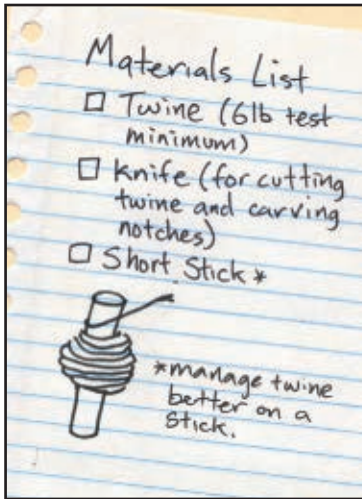 Materials List
☐ Twine (6lb test
minimum)
☐ Knife (for cutting
twine and carving
notches)
☐ Short Stick *
*manage twine
better on a
stick.